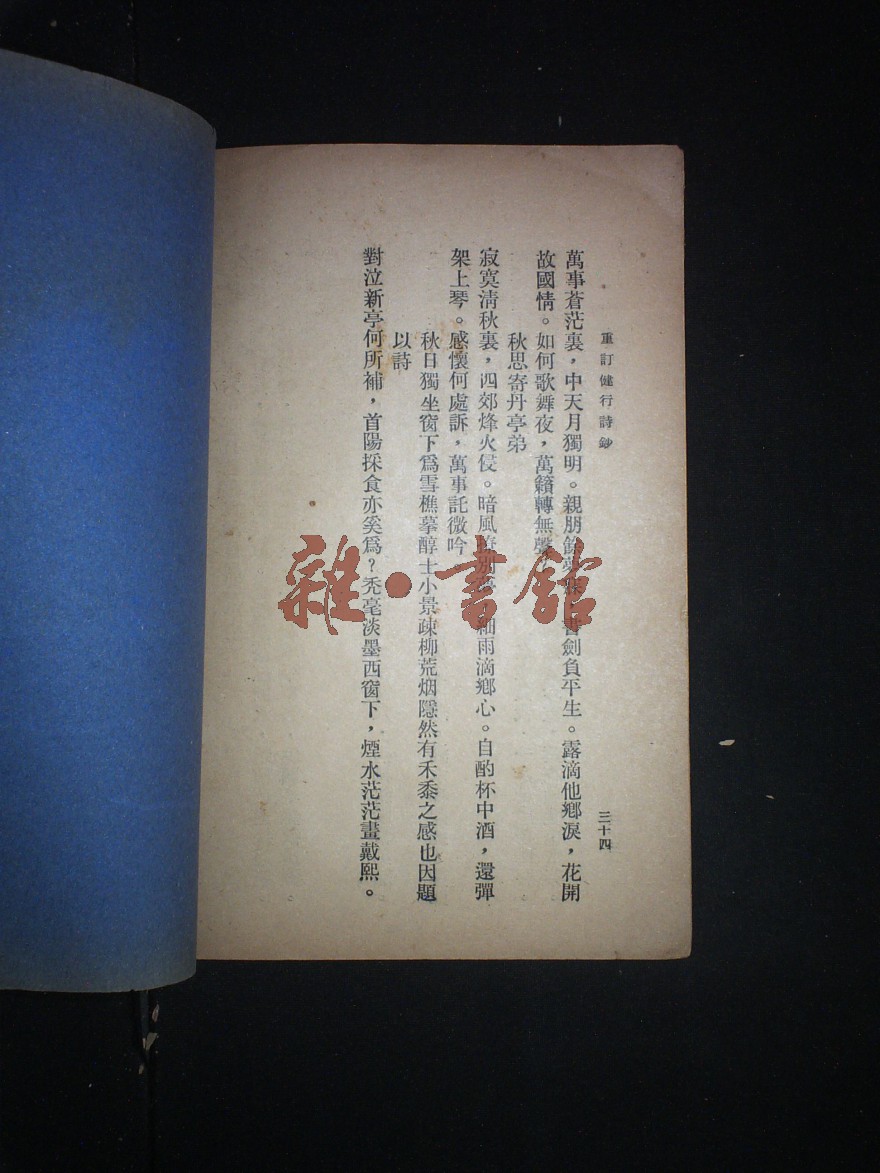 重訂健行詩鈔
三十四
萬事蒼茫裏，中天月獨明。親朋餘夢 書劍負平生。露滴他鄉淚，花開
故國情。如何歌舞夜，萬籟轉無聲
秋思寄丹亭弟
寂寞清秋裏，四郊烽火侵。暗風 別 細雨滴鄉心。自酌杯中酒，還彈
架上琴。感懷何處訴，萬事託微吟
秋日獨坐窗下爲雪樵摹醇士小景疎柳荒烟隱然有禾黍之感也因題
以詩
對泣新亭何所補，首陽採食亦奚爲？禿毫淡墨西窗下，煙水茫茫畫戴熙。
雜·書館